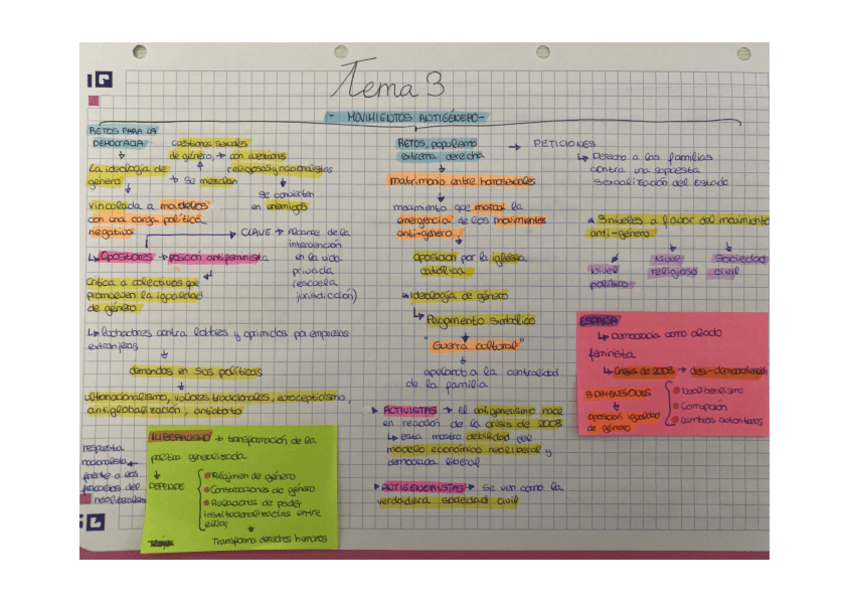 Tema 3
- MOVIMIENTOS ANTIGÉNERO -
RETOS PARA LA
DEMOCRACIA
cuestiones sexuales
de género, → con cuestiones
religiosas y nacionalistas
La ideología de
género → se mezclan
se convierten
en enemigos
vinculada a modelos
con una carga política
negativa
CLAVE → Alcance de la
intervención
en la vida
privada
(escuela
jurisdicción)
↳ Opositores → posición antifeminista
Crítica a colectivos que
promueven la igualdad
de género
↳ luchadores contra lobbies y oprimidos por empresas
extranjeras
demandas en sos políticos
ultranacionalismo, valores tradicionales, euroceptismo,
antiglobalización, antiaborto
respuesta
nacionalista
frente a los
fracasos del
neoliberalismo
ILIBERALISMO → transformación de la
política generalizada
DEFIENDE
Régimen de género
Construcciones de género
Relaciones de poder
institucionalizadas entre
ellos
Transforma derechos humanos
RETOS, populismo
extrema derecha
matrimonio entre homosexuales
movimiento que marca la
emergencia de los movimientos
anti-género
oposición por la iglesia
católica
Ideología de género
↳ Pegamento simbólico
"Guerra cultural"
apelando a la centralidad
de la familia
ACTIVISTAS → El antigenerismo nace
en reacción de la crisis de 2008
↳ esta mostro debilidad del
modelo económico neoliberal y
democracia liberal
ANTIGENERISTAS → Se ven como la
verdadera sociedad civil
→ PETICIONES
↳ Derecho a las familias
contra una supuesta
sexualización del Estado
3 niveles a favor del movimiento
anti-género
Nivel
político
Nivel
religioso
Sociedad
civil
ESPAÑA
↳ Democracia como aliado
feminista
↳ Crisis de 2008 → des-democratización
3 DIMENSIONES
oposición igualdad
de género
Neoliberalismo
Corrupción
Cambios autoritarios